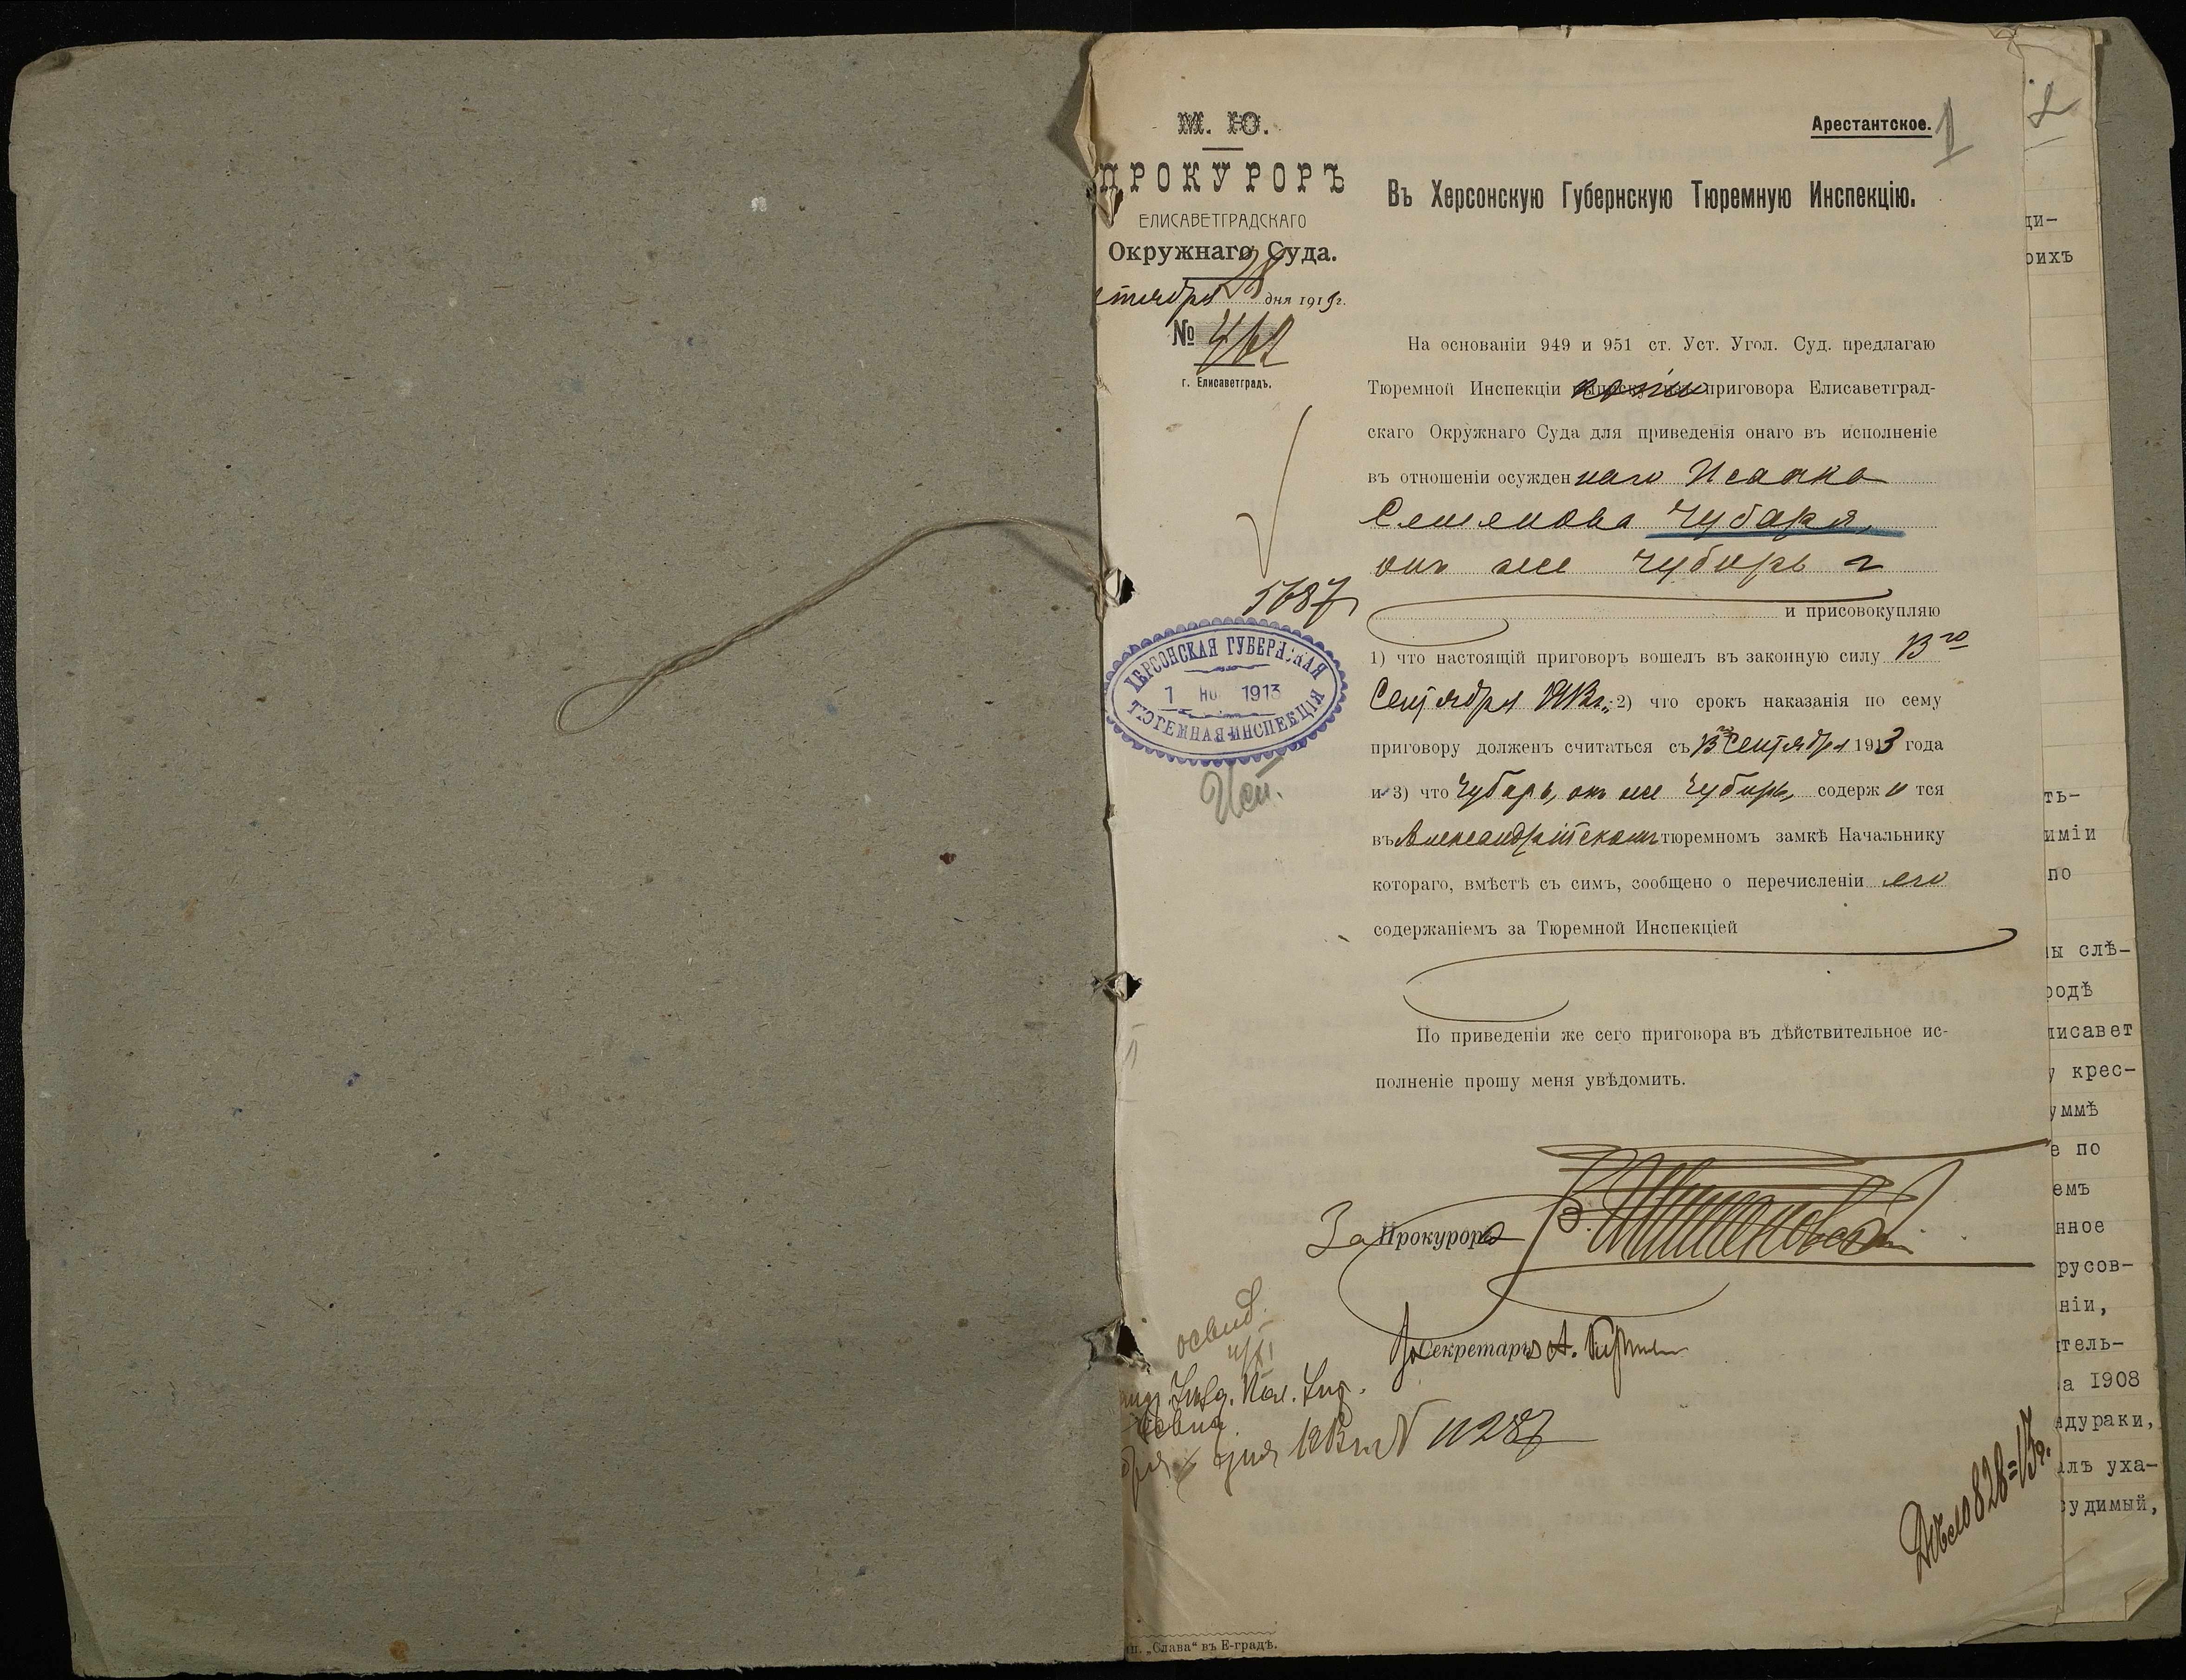 М. Ю.
ПРОКУРОРЪ
ЕЛИСАВЕТГРАДСКАГО
Окружнаго Суда.
28 дня 1913 г.
№ 462
г. Елисаветградъ.
5687
ХЕРСОНСКАЯ ГУБЕРНСКАЯ
1 НО 1913
ТЮРЕМНАЯ ИНСПЕКЦІЯ
Исп.
Арестантское. 1
Въ Херсонскую Губернскую Тюремную Инспекцію.
На основаніи 949 и 951 ст. Уст. Угол. Суд. предлагаю
Тюремной Инспекціи копію приговора Елисаветград-
скаго Окружнаго Суда для приведенія онаго въ исполненіе
въ отношеніи осужденнаго Исаака
Семенова Чубаря,
онъ же Чубирь
и присовокупляю
1) что настоящій приговоръ вошелъ въ законную силу 13го
Сентября 1913 г.; 2) что срокъ наказанія по сему
приговору долженъ считаться съ 13го Сентября 1913 года
и 3) что Чубарь, онъ же Чубирь, содержится
въ Александрійскомъ тюремномъ замкѣ Начальнику
котораго, вмѣстѣ съ симъ, сообщено о перечисленіи его
содержаніемъ за Тюремной Инспекціей
По приведеніи же сего приговора въ дѣйствительное ис-
полненіе прошу меня увѣдомить.
За Прокурора
Секретарь А.
освид.
дня 1913 г. № 11287
Дѣло 828=13 г.
"Слава" въ Е-градѣ.
2
ди-
оихъ
ть-
иміи
по
ы слѣ-
родѣ
лисавет
у крес-
уммѣ
е по
емъ
нное
русов-
ніи,
тель-
а 1908
дураки,
лъ уха-
судимый,